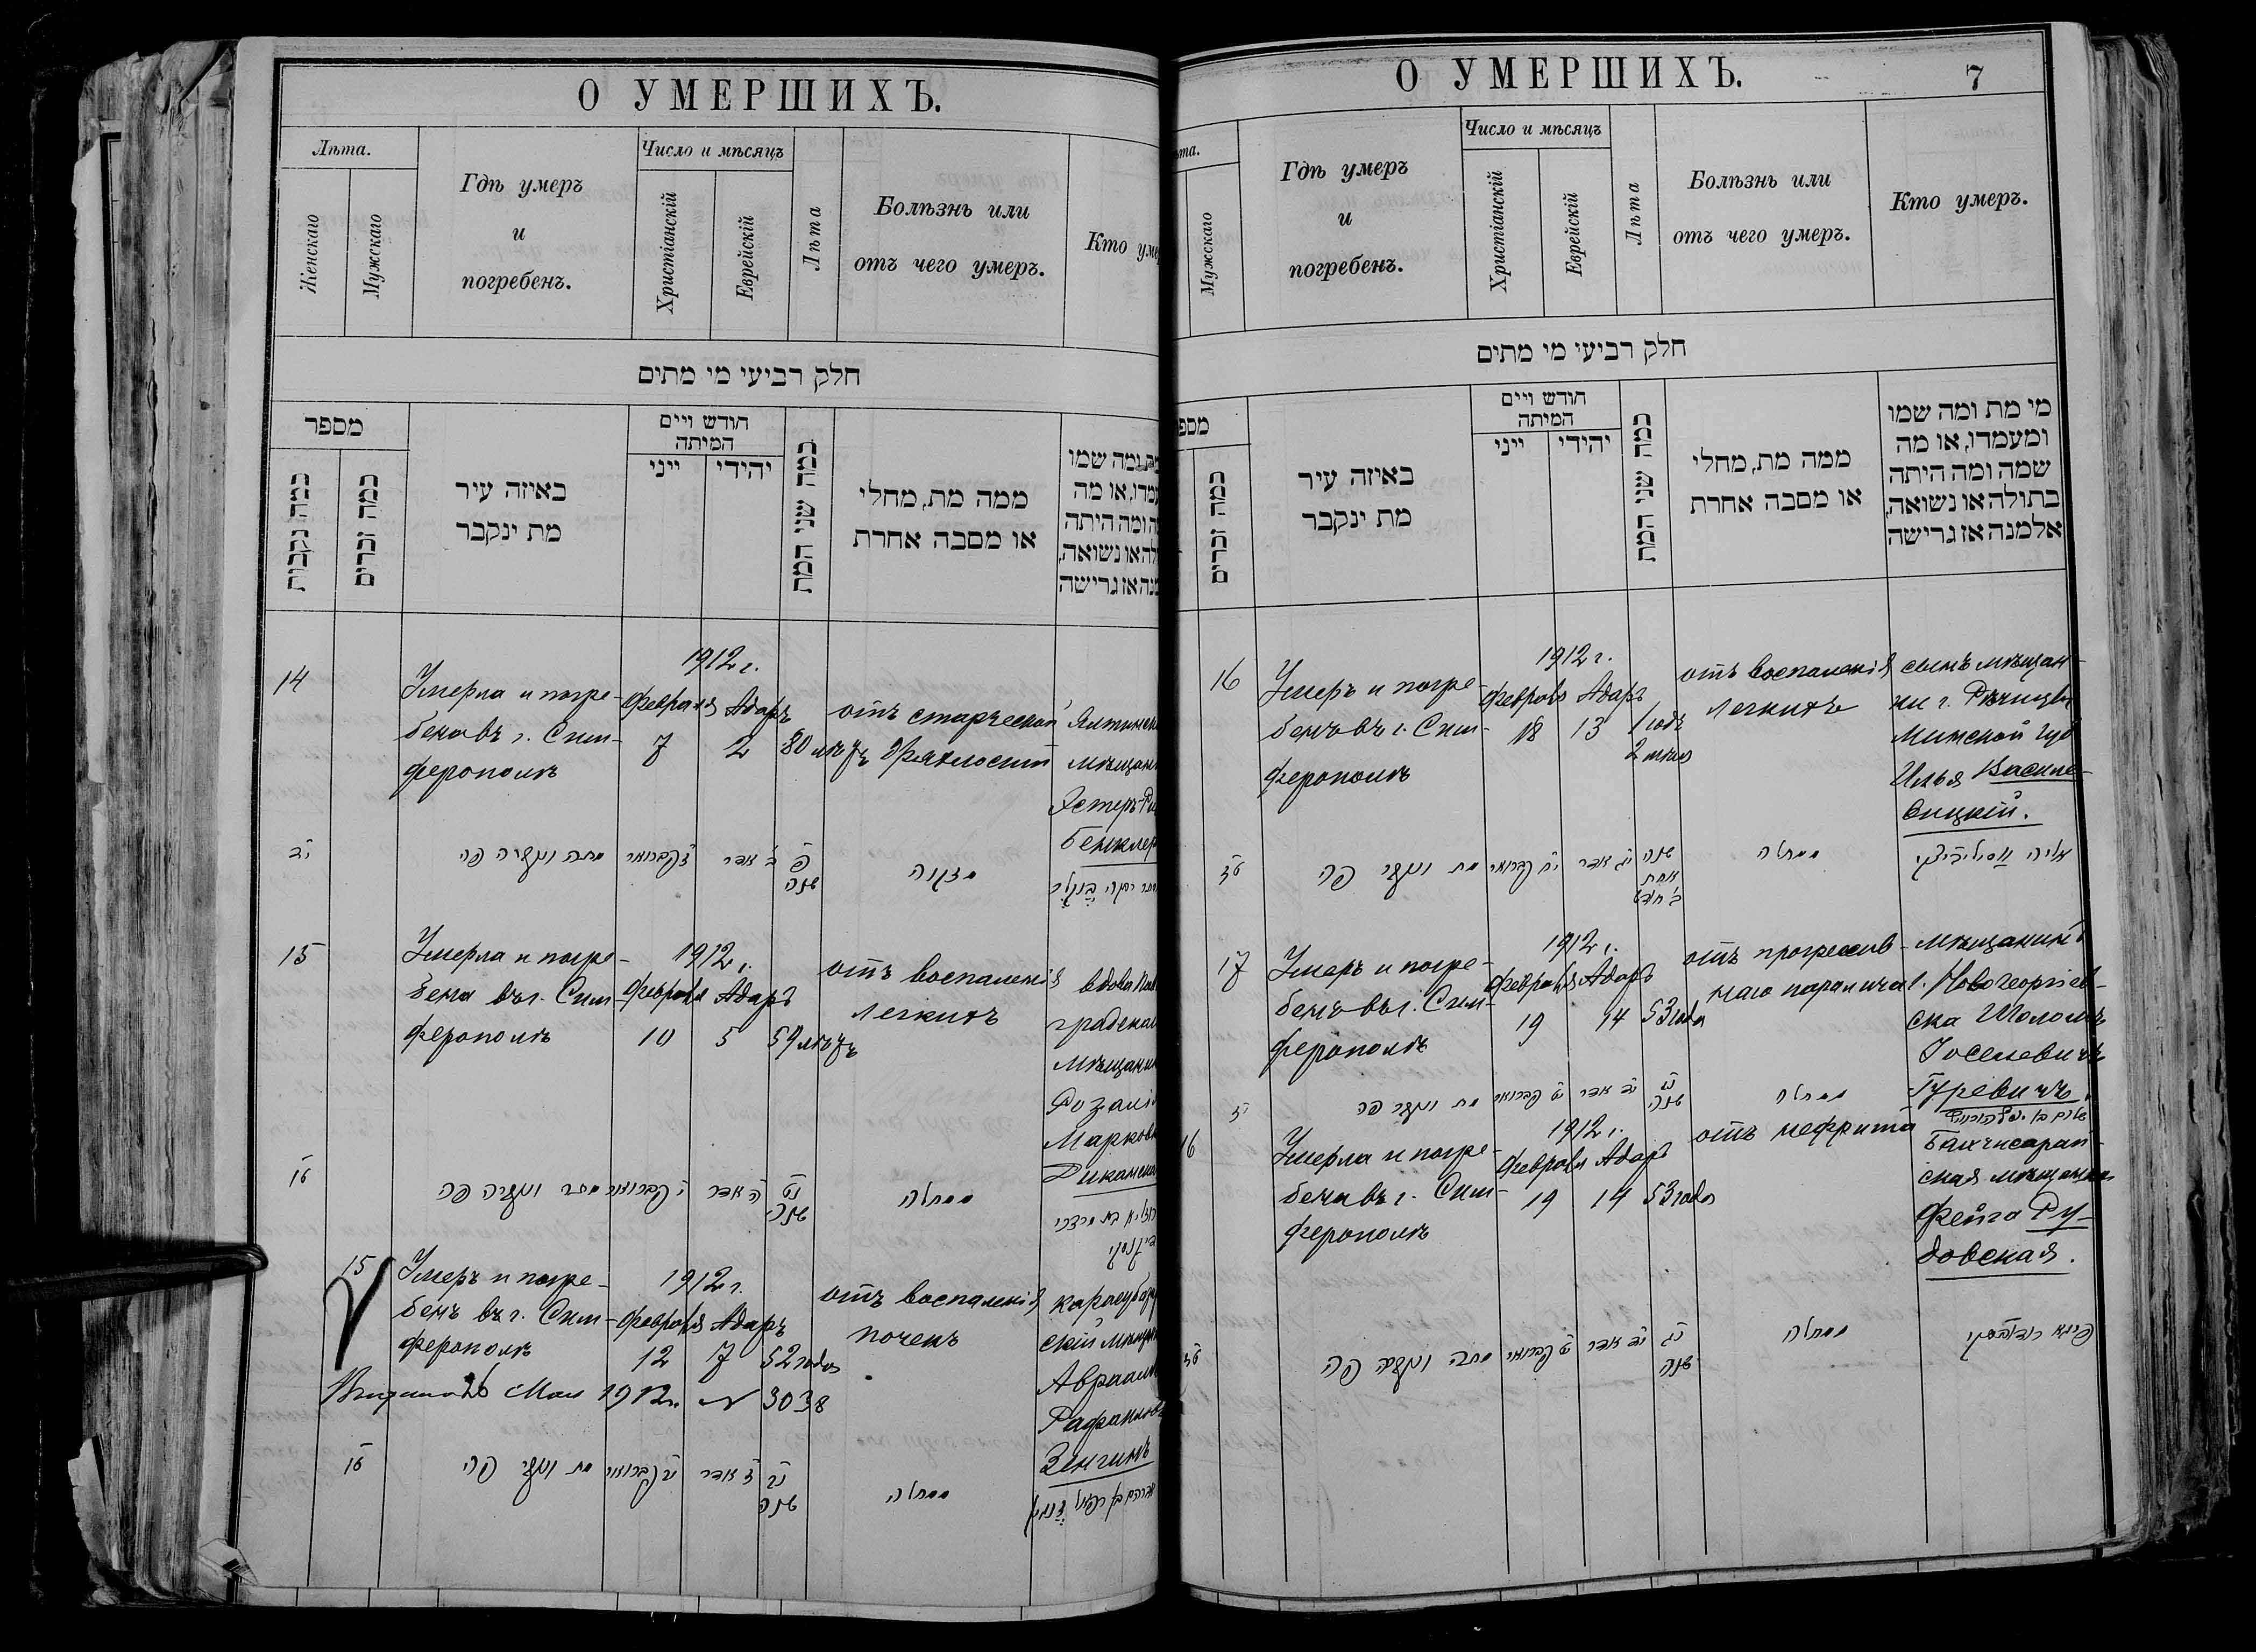 О УМЕРШИХЪ.
Лѣта.
Женскаго
Мужскаго
Гдѣ умеръ
и
погребенъ.
Число и мѣсяцъ
Христіанскій
Еврейскій
Лѣта
Болѣзнь или
отъ чего умеръ.
Кто уме
חלק רביעי מי מתים
מספר
כמה נקבות
כמה זכרים
באיזה עיר
מת ינקבר
חודש ויים
המיתה
ייני
יהידי
כמה שני המת
ממה מת, מחלי
או מסבה אחרת
מת ומה שמו
עמדו, או מה
ה ומה היתה
לה או נשואה,
מנה אז גרישה
14
Умерла и погре-
бена въ г. Сим-
ферополѣ
1912 г.
Февраля Адаръ
7 2
80 лѣтъ
отъ старческой
дряхлости
Ялтинск
мѣщан
Эстеръ
Бенклер
יד
מתה ונקברה פה
ז פברואר
ב אדר
פ
שנה
מזקנה
15
Умерла и погре-
бена въ г. Сим
ферополѣ
1912 г.
Февраля Адаръ
10 5
59 лѣтъ
отъ воспаленія
легкихъ
вдова Пав
градская
мѣщанин
Розалі
Марковн
Диканск
טו
מתה ונקברה פה
י פברואר
ה אדר
נט
שנה
ממחלה
15
Умеръ и погре-
бенъ въ г. Сим-
ферополѣ
1912 г.
Февраля Адаръ
12 7
52 года
отъ воспаленія
почекъ
Карасубаз
скій мѣщан
Авраам
Рафаилов
Зенгинъ
Мая 1912 г. № 3038
טו
מת ונקבר פה
יב פברואר
ז אדר
נב
שנה
ממחלה
אברהם בן רפאל זנגין
О УМЕРШИХЪ.
7
ѣта.
Мужскаго
Гдѣ умеръ
и
погребенъ.
Число и мѣсяцъ
Христіанскій
Еврейскій
Лѣта
Болѣзнь или
отъ чего умеръ.
Кто умеръ.
חלק רביעי מי מתים
מספ
כמה זכרים
באיזה עיר
מת ינקבר
חודש ויים
המיתה
ייני
יהידי
כמה שני המת
ממה מת, מחלי
או מסבה אחרת
מי מת ומה שמו
ומעמדו, או מה
שמה ומה היתה
בתולה או נשואה,
אלמנה אז גרישה
16
Умеръ и погре-
бенъ въ г. Сим-
ферополѣ
1912 г.
Февраля Адаръ
18 13
1 годъ
2 мѣс
отъ воспаленія
легкихъ
сынъ мѣщан-
ин г. Рѣчицы
Минской губ
Илья Василе-
вицкій.
טז
מת ונקבר פה
יח פברואר
יג אדר
שנה
אחת
ב חדש
ממחלה
אליה וסילביצקי
17
Умеръ и погре-
бенъ въ г. Сим-
ферополѣ
1912 г.
Февраля Адаръ
19 14
53 года
отъ прогрессив-
наго паралича
мѣщанинъ
г. Новогеоргіев-
ска Шоломъ
Іоселевичъ
Гуревичъ.
יז
מת ונקבר פה
יט פברואר
יד אדר
נג
שנה
ממחלה
16
Умерла и погре-
бена въ г. Сим-
ферополѣ
1912 г.
Февраля Адаръ
19 14
53 года
отъ нефрита
Бахчисарай-
ская мѣщанка
Фейга Ру-
довская.
טז
מתה ונקברה פה
יט פברואר
יד אדר
נג
שנה
ממחלה
פיגא רודובסקי